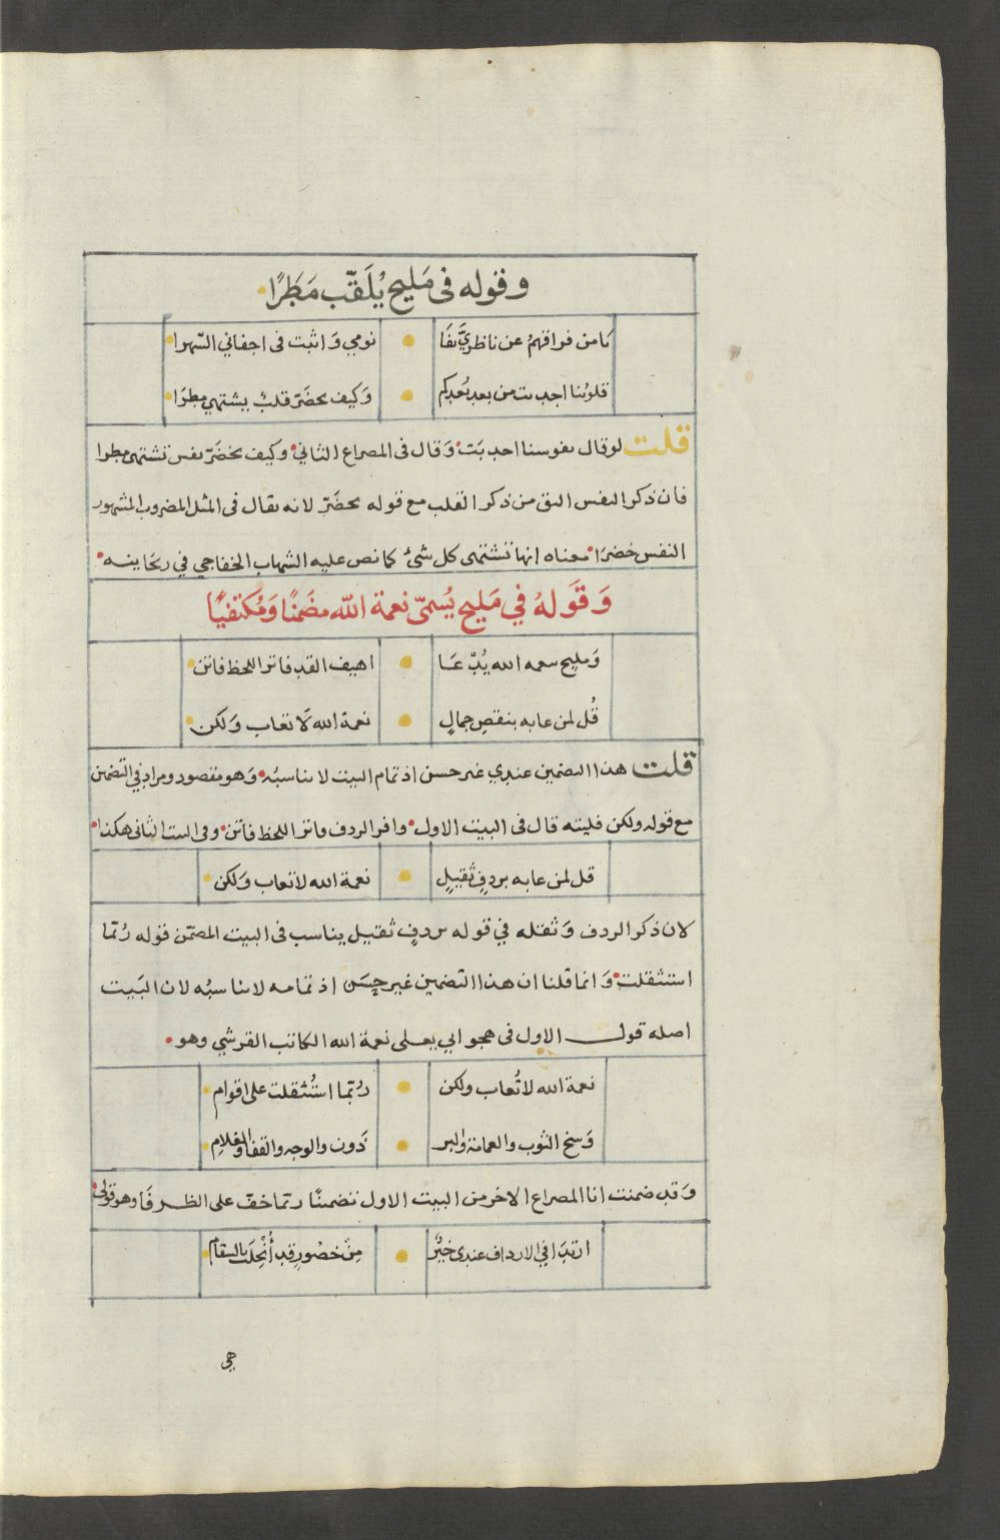 وقوله في مَليح يُلَقّب مَطَرًا
يا من فراقهمُ عن ناظريَّ نفَا نومي وَاثبت في اجفاني السّهرا
قلوبُنا اجدبت من بعد بُعدكم وَكيف يخضَرّ قلبٌ يشتهي مطرَا
قلت لو قال نفوسنا اجدبَت وَقال في المصراع الثاني وكيف تخضَرّ نفس تشتهي مطرا
فان ذكر النفس اليق من ذكر القلب مع قوله يخضَرّ لانه يقال في المثل المضروب المشهور
النفس خضرَا معناه انها تشتهى كل شئ كما نص عليه الشهاب الخفاجي في ريحَانيته
وَقَولهُ في مَليح يُسمّى نعمة اللّه مضَمنًا وَمُكتفيًا
وَمليح بنعمه الله يُدّعَا اهيف القد فاتر اللحظ فاتن
قُل لمن عابه بنقصِ جمالٍ نعمة الله لَا تعاب وَلكن
قلت هذا التضمين عندي غير حسن اذ تمام البيت لا يناسبُه وَهو مقصود ومراد في التضمين
مع قوله ولكن فليته قال في البيت الاول وافر الردف فاتر اللحظ فاتن وفي البيت الثاني هكذا
قل لمن عابه بردفٍ ثقيلٍ نعمة الله لا تعاب وَلكن
لان ذكر الردف وَثقله في قوله بردفٍ ثقيل يناسب في البيت المضمّن قوله رُبّما
استثقلت وَانما قلنا ان هذا التضمين غير حِسَن اذ تمامه لا يناسبُه لان البَيت
اصله قول الاول في هجو ابي يعلى نعمة الله الكاتب القرشي وهو
نعمة الله لا تُعاب ولكن ربّما استُثقلت على اقوام
وَسخ الثوب والعمامة والبر ذَون والوجه والقفا والغلامِ
وَقد ضمنت انا المصراع الاخر من البيت الاول تضمينًا ربّما خفّ على الظرفَا وهو قولي
ان تبَدا في الارداف عندى خيرٌ مِنْ خصُورٍ قد أُنْحِلَت بالسقَام
هي